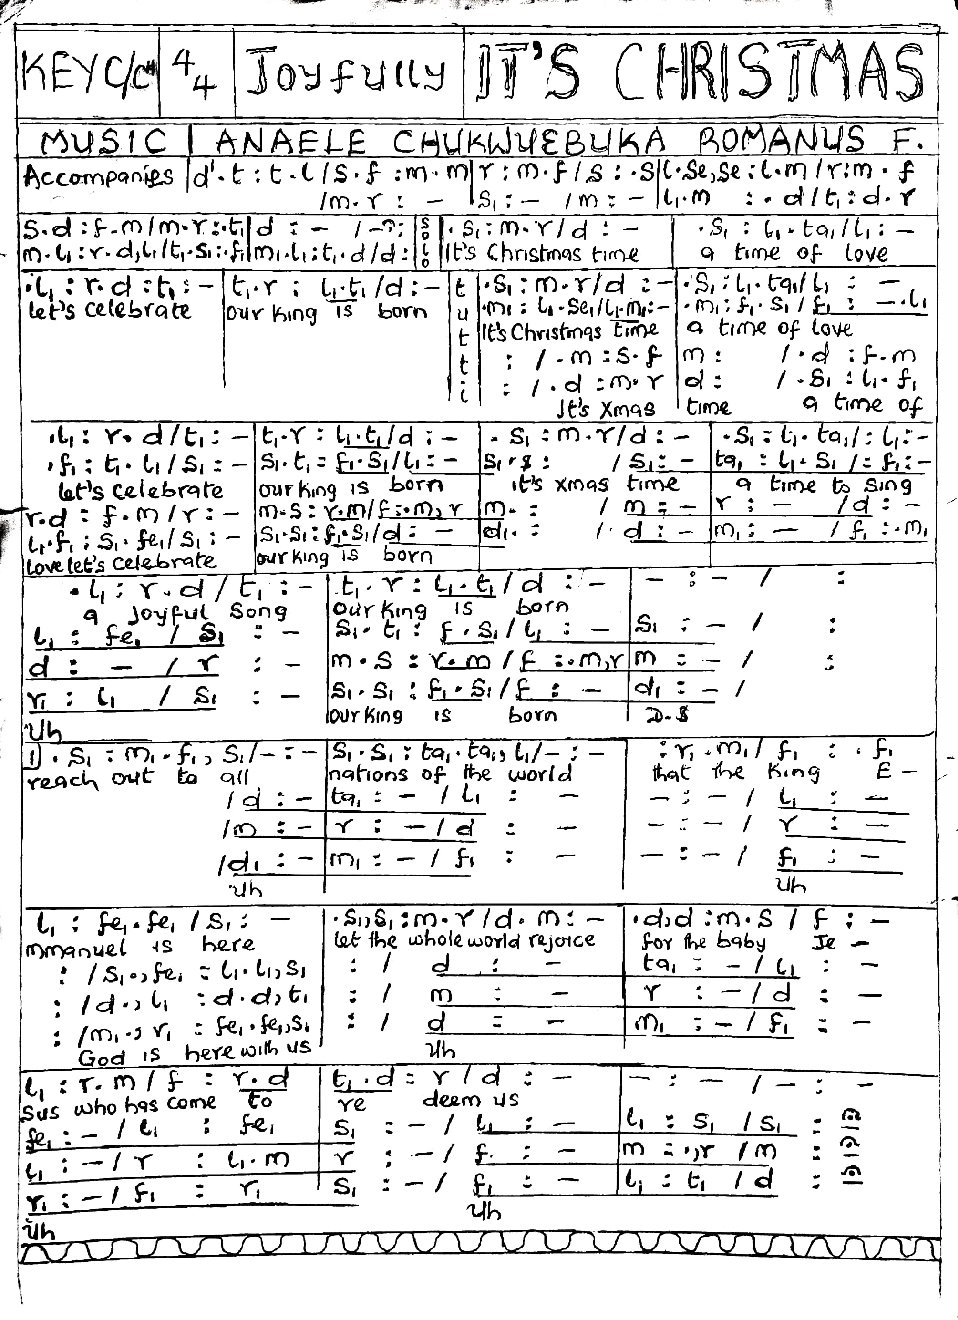 KEY C/C# 4/4 Joyfully IT'S CHRISTMAS
MUSIC | ANAELE CHUKWUEBUKA ROMANUS F.
Accompanies | d'.t : t.l / s.f : m.m | r : m.f / s : .s | l.se,se : l.m / r : m.f
/m.r : - | s₁ : - /m : - | l₁.m : .d / t₁ : d.r
s.d : f.m / m.r : .t₁ | d : - / -^ : | SOLO | .s₁ : m.r / d : - | .s₁ : l₁.ta₁ / l₁ : -
m.l₁ : r.d,l₁ / t₁.s₁ : .f₁ | m₁.l₁ : t₁.d / d : | It's Christmas time | a time of love
.l₁ : r.d : t₁ : - | t₁.r : l₁.t₁ / d : - | tutti | .s₁ : m.r / d : - | .s₁ : l₁.ta₁ / l₁ : -
let's celebrate | our King is born | .m₁ : l₁.se₁ / l₁.m₁ : - | .m₁ : f₁.s₁ / f₁ : - .l₁
It's Christmas time | a time of love
: / .m : s.f | m : / .d : f.m
: / .d : m.r | d : / .s₁ : l₁.f₁
It's Xmas | time a time of
.l₁ : r.d / t₁ : - | t₁.r : l₁.t₁ / d : - | .s₁ : m.r / d : - | .s₁ : l₁.ta₁ / : l₁ : -
.f₁ : t₁.l₁ / s₁ : - | s₁.t₁ : f₁.s₁ / l₁ : - | s₁.s : / s₁ : - | ta₁ : l₁.s₁ / : f₁ : -
let's celebrate | our King is born | it's xmas time | a time to sing
r.d : f.m / r : - | m.s : r.m / f : .m,r | m. : / m : - | r : - / d : -
l₁.f₁ : s₁.fe₁ / s₁ : - | s₁.s₁ : f₁.s₁ / d : - | d₁. : / d : - | m₁ : - / f₁ : .m₁
love let's celebrate | our King is born
.l₁ : r.d / t₁ : - | t₁.r : l₁.t₁ / d : - | - : - / :
a Joyful Song | our King is born
l₁ : fe₁ / s₁ : - | s₁.t₁ : f.s₁ / l₁ : - | s₁ : - / :
d : - / r : - | m.s : r.m / f : .m,r | m : - / :
r₁ : l₁ / s₁ : - | s₁.s₁ : f₁.s₁ / f : - | d₁ : - /
Uh | our King is born | D.S
1) .s₁ : m₁.f₁,s₁ / - : - | s₁.s₁ : ta₁.ta₁,l₁ / - : - | : r₁.m₁ / f₁ : .f₁
reach out to all | nations of the world | that the King E -
/ d : - | ta₁ : - / l₁ : - | - : - / l₁ : -
/ m : - | r : - / d : - | - : - / r : -
/ d₁ : - | m₁ : - / f₁ : - | - : - / f₁ : -
Uh | Uh
l₁ : fe₁.fe₁ / s₁ : - | .s₁,s₁ : m.r / d.m : - | .d,d : m.s / f : -
mmanuel is here | let the whole world rejoice | for the baby Je -
: / s₁.,fe₁ : l₁.l₁,s₁ | : / d : - | ta₁ : - / l₁ : -
: / d.,l₁ : d.d,t₁ | : / m : - | r : - / d : -
: / m₁.,r₁ : fe₁.fe₁,s₁ | : / d : - | m₁ : - / f₁ : -
God is here with us | Uh
l₁ : r.m / f : r.d | t₁.d : r / d : - | - : - / - : -
Sus who has come to | re deem us
fe₁ : - / l₁ : fe₁ | s₁ : - / l₁ : - | l₁ : s₁ / s₁ :
l₁ : - / r : l₁.m | r : - / f : - | m : .,r / m :
r₁ : - / f₁ : r₁ | s₁ : - / f₁ : - | l₁ : t₁ / d :
Uh | Uh